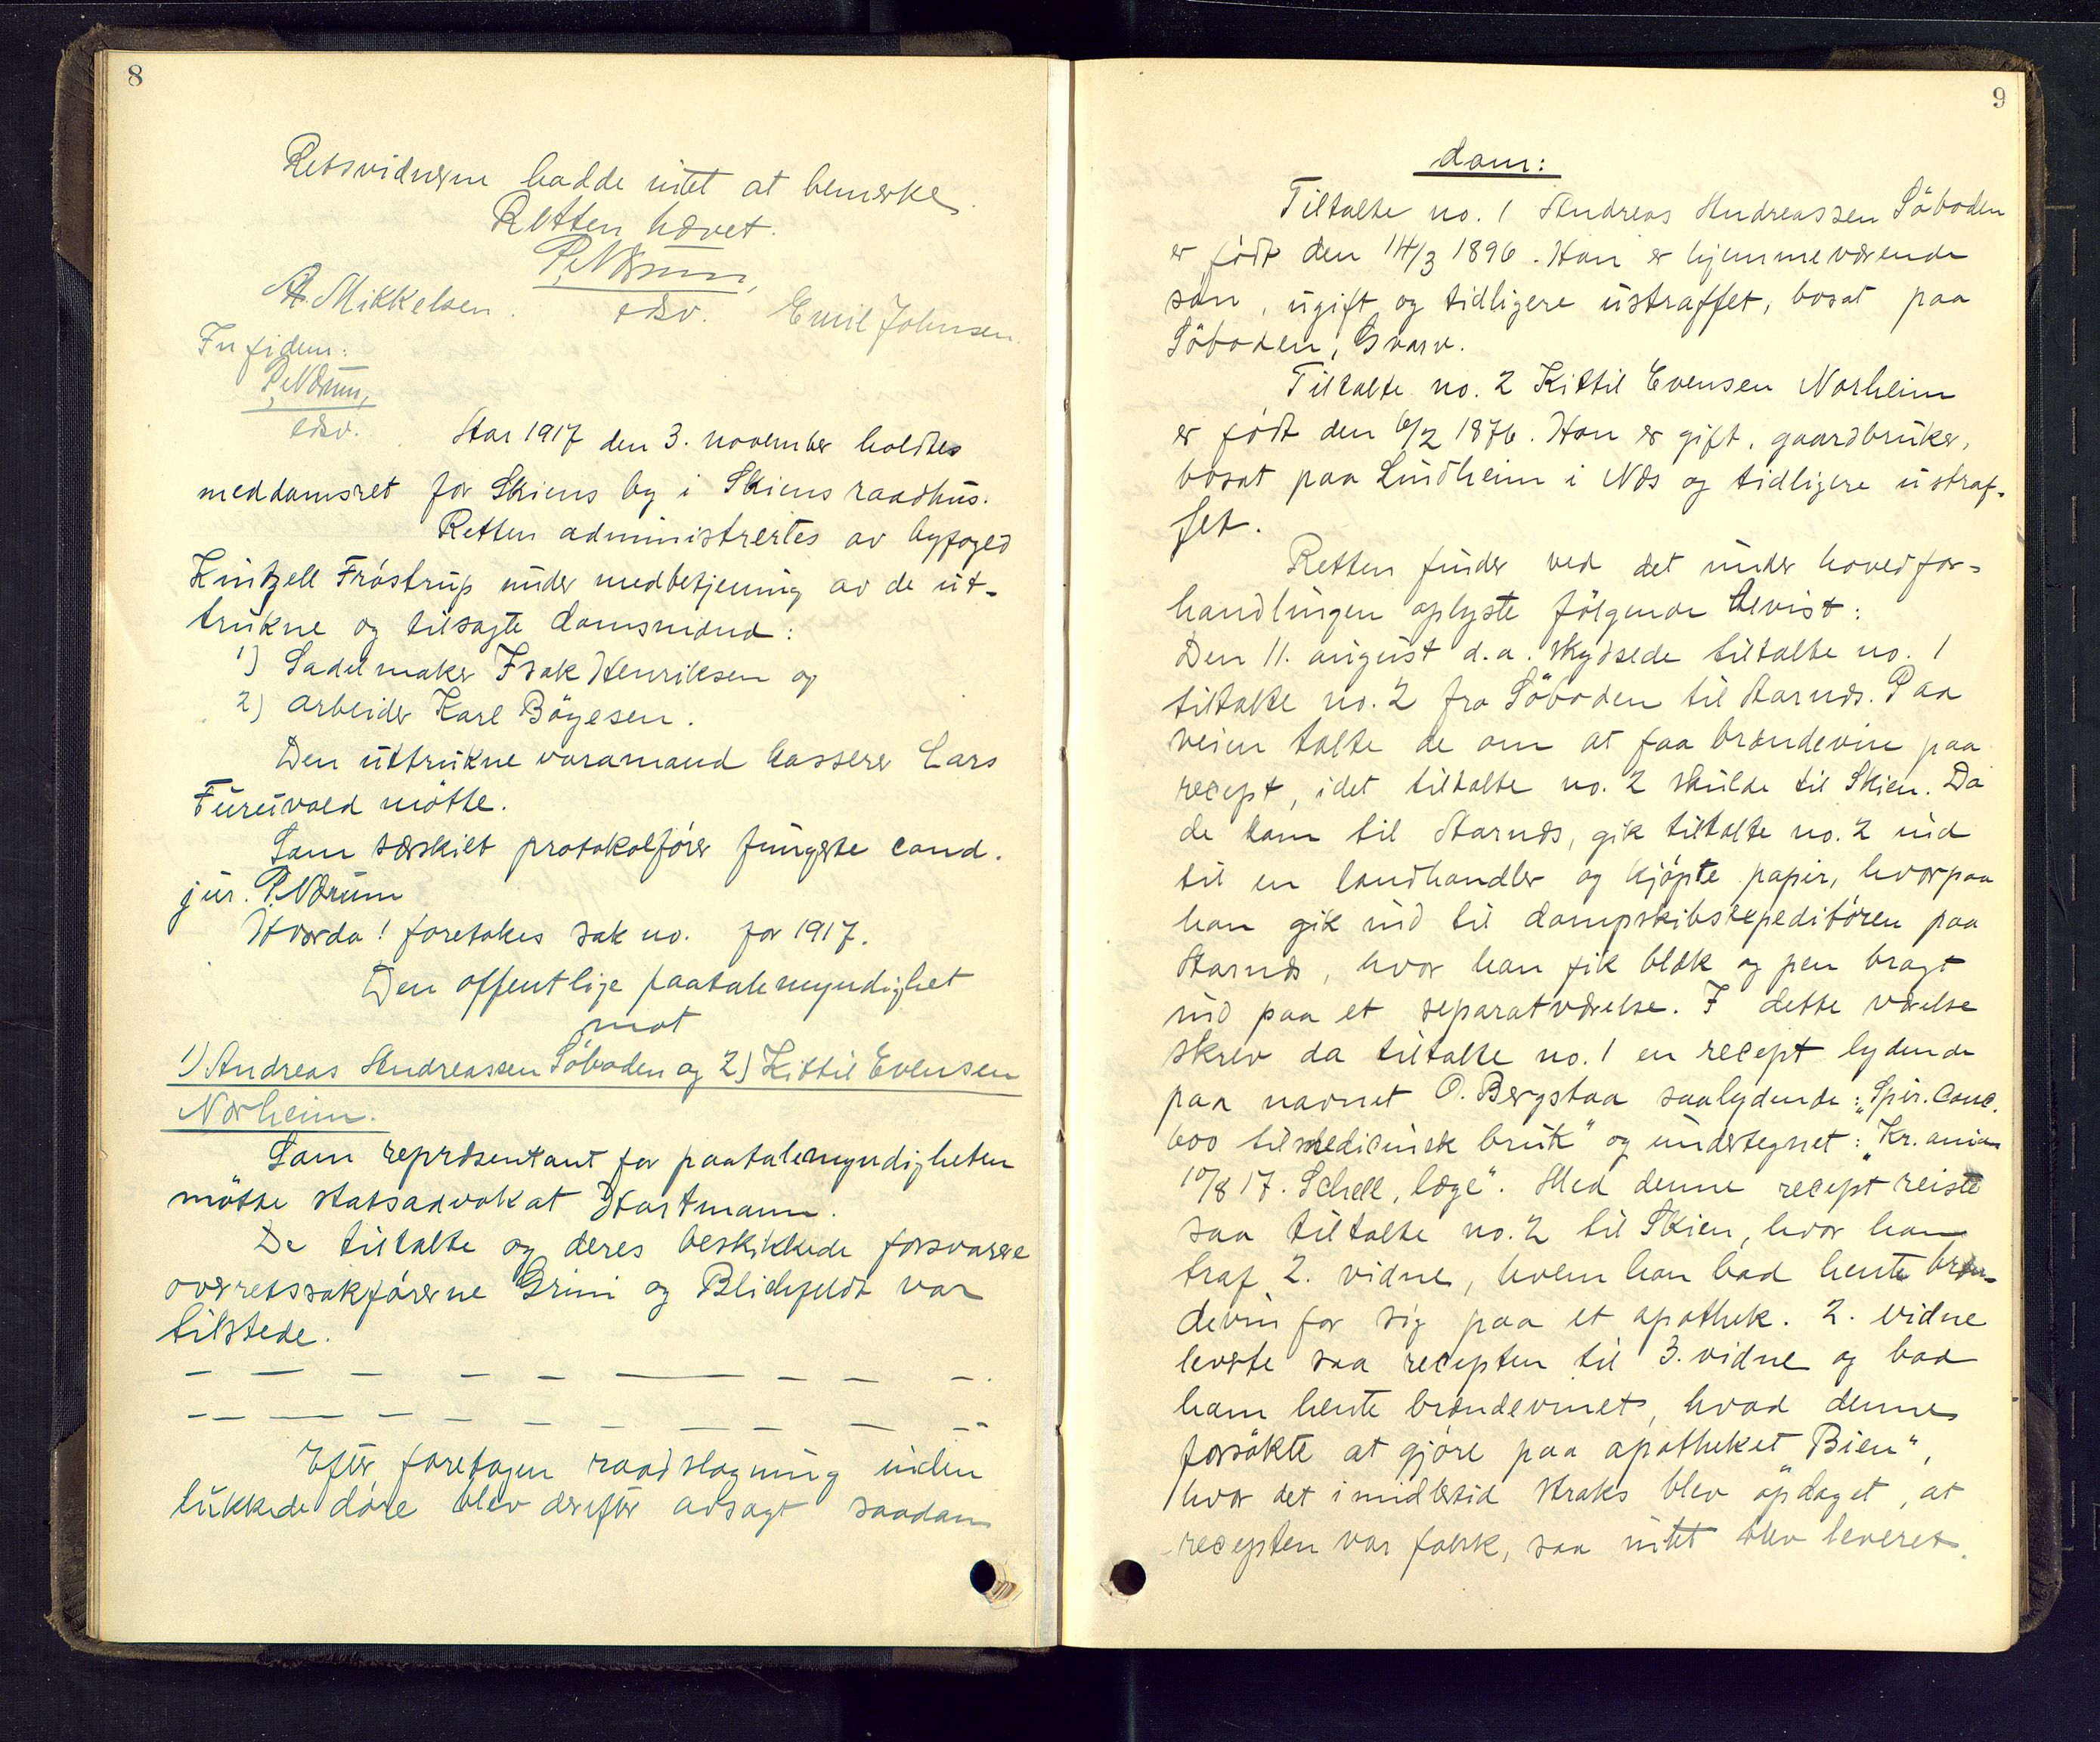 8
Retsvidnerne hadde intet at bemerke.
Retten hævet.
P. Nærum,
edsv.
A. Mikkelsen. Emil Johnsen.
In fidem:
P. Nærum,
edsv.
Aar 1917 den 3. november holdtes
meddomsret for Skiens by i Skiens raadhus.
Retten administrertes av byfoged
Kintzell Frøstrup under medbetjening av de ut-
trukne og tilsagte domsmænd:
1) Sadelmaker Isak Henriksen og
2) arbeider Karl Bøgesen.
Den uttrukne varamand kasserer Lars
Furuvald møtte.
Som særskilt protokolfører fungerte cand.
jur. P. Nærum
Hvorda! foretokes sak no. for 1917.
Den offentlige paatalemyndighet
mot
1) Andreas Andreassen Söboden og 2) Kittil Evensen
Norheim.
Som repræsentant for paatalemyndigheten
møtte statsadvokat Hartmann.
De tiltalte og deres beskikkede forsvarere
overretssakførerne Grini og Blichfeldt var
tilstede.
Efter foretagen raadslagning inden
lukkede døre blev derefter avsagt saadan
9
dom:
Tiltalte no. 1 Andreas Andreassen Söboden
er født den 14/3 1896. Han er hjemmeværende
søn, ugift og tidligere ustraffet, bosat paa
Söboden, Gvarv.
Tiltalte no. 2 Kittil Evensen Norheim
er født den 6/2 1876. Han er gift, gaardbruker,
bosat paa Lindheim i Næs og tidligere ustraf-
fet.
Retten finder ved det under hovedfor-
handlingen oplyste følgende bevist:
Den 11. august d.a. skydsede tiltalte no. 1
tiltalte no. 2 fra Söboden til Aarnæs. Paa
veien talte de om at faa brændevin paa
recept, idet tiltalte no. 2 skulde til Skien. Da
de kom til Aarnæs, gik tiltalte no. 2 ind
til en landhandler og kjøpte papir, hvorpaa
han gik ind til dampskibsexpeditøren paa
Aarnæs, hvor han fik blæk og pen bragt
ind paa et separatværelse. I dette værelse
skrev da tiltalte no. 1 en recept lydende
paa navnet O. Bergstaa saalydende: "Spir. Conc.
600 til medicinsk bruk" og undertegnet: "Kr.ania
10/8 17. Schell, læge". Med denne recept reiste
saa tiltalte no. 2 til Skien, hvor han
traf 2. vidne, hvem han bad hente bræn-
devin for sig paa et apothek. 2. vidne
leverte saa recepten til 3. vidne og bad
ham hente brændevinet, hvad denne
forsøkte at gjøre paa apotheket "Bien",
hvor det imidlertid straks blev opdaget, at
recepten var falsk, saa intet blev leveret.